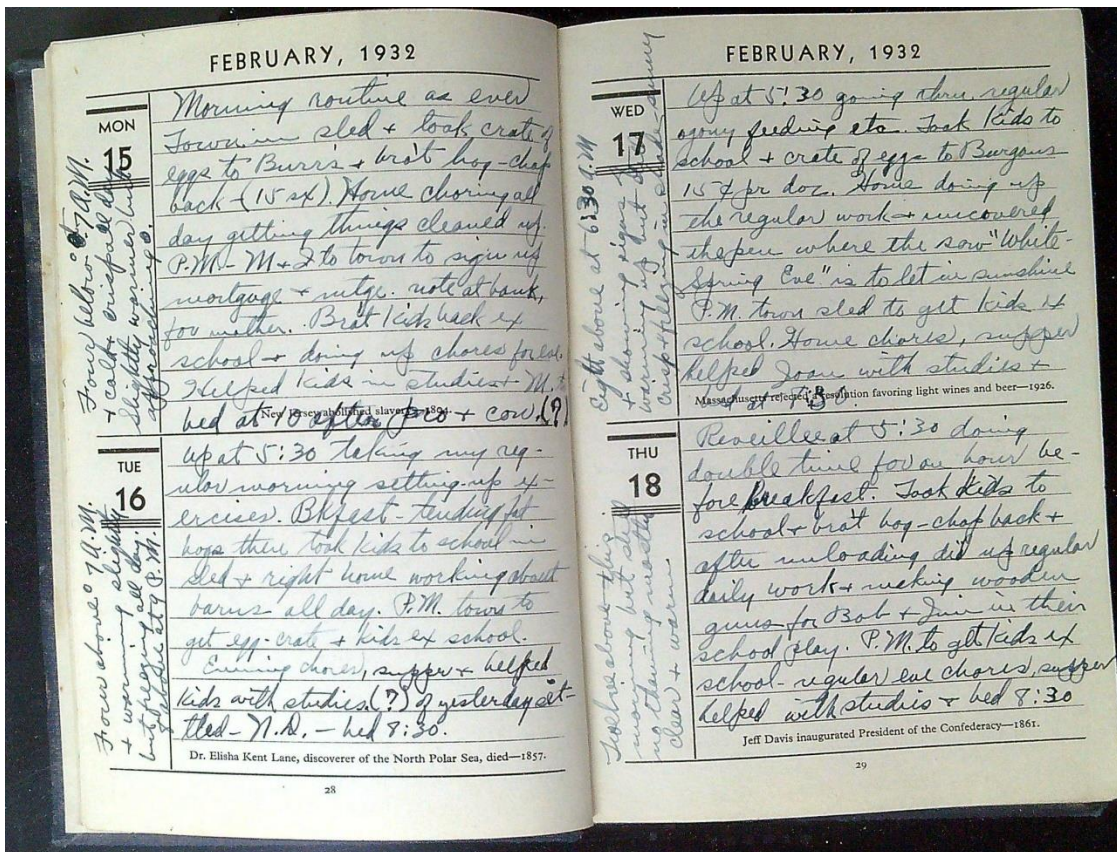 FEBRUARY, 1932
MON
15
Four below 0 at 7 A.M.
+ cold + crisp all day
slightly warmer but
approaching 0.
Morning routine as ever
Town in sled + took crate of
eggs to Burr's + bro't hog-chop
back - (15 sx). Home choring all
day getting things cleaned up.
P.M. - M + I to town to sign up
mortgage + mtge. note at bank,
for mother. Bro't kids back ex
school + doing up chores for eve.
Helped kids in studies + M. to
New Jersey abolished slavery—1804.
bed at 10 after + cow. (?)
TUE
16
Four above 0 7 A.M.
+ warming slightly
but freezing all day.
above at 9 P.M.
Up at 5:30 taking my reg-
ular morning setting-up ex-
ercises. Bkfast - tending fat
hogs then took kids to school in
sled + right home working about
barns all day. P.M. town to
get egg-crate + kids ex school.
Evening chores, supper + helped
kids with studies. (?) of yesterday set-
tled - N.D. - bed 8:30.
Dr. Elisha Kent Lane, discoverer of the North Polar Sea, died—1857.
28
FEBRUARY, 1932
WED
17
Eight above at 6:30 A.M
+ showing signs of
warming up but still
crisp + freezing in shade - sunny
Up at 5:30 going thru regular
agony feeding etc. Took kids to
school + crate of eggs to Burgans
15¢ pr doz. Home doing up
the regular work + uncovered
the pen where the sow "White-
Spring Eve" is to let in sunshine
P.M. town sled to get kids ex
school. Home chores, supper
helped Joan with studies +
Massachusetts rejected a resolution favoring light wines and beer—1926.
bed at 8:30.
THU
18
Twelve above this
morning but still
no thawing mostly
clear + warm
Reveille at 5:30 doing
double time for an hour be-
fore breakfast. Took kids to
school + bro't hog-chop back +
after unloading did up regular
daily work + making wooden
guns for Bob + Jim in their
school play. P.M. to get kids ex
school - regular eve chores, supper
helped with studies + bed 8:30
Jeff Davis inaugurated President of the Confederacy—1861.
29